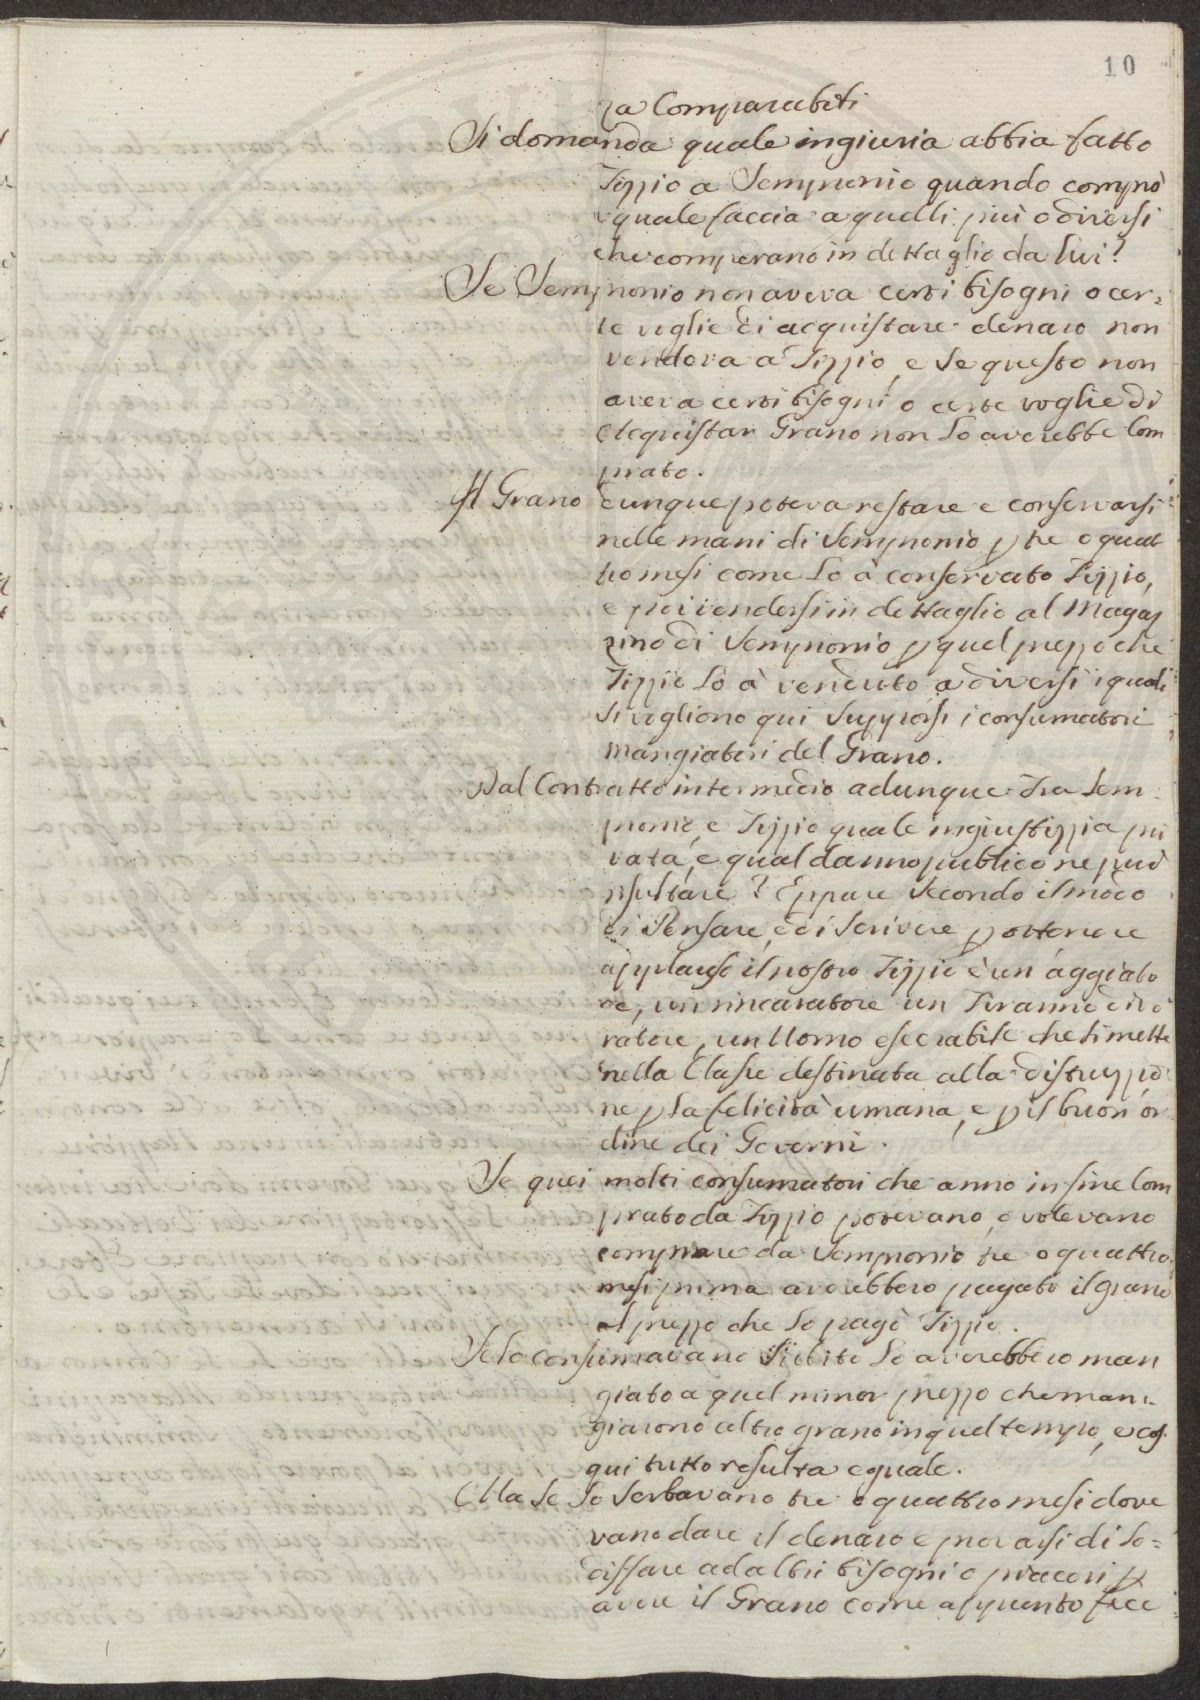 10
ra Comparabili
Si domanda quale ingiuria abbia fatto
Tizzio a Sempronio quando comprò
e quale faccia a quelli più o diversi
che comperano in dettaglio da lui?
Se Sempronio non aveva certi bisogni o cer=
te voglie di acquistare denaro non
vendeva a Tizzio, e se questo non
aveva certi bisogni o certe voglie di
Acquistar Grano non lo averebbe Com
prato.
Il Grano dunque poteva restare e conservarsi
nelle mani di Sempronio p tre o quat
tro mesi come lo à conservato Tizzio,
e poi vendersi in dettaglio al Magaz
zino di Sempronio p quel prezzo che
Tizzio lo à venduto a diversi i quali
si vogliono qui supporsi i consumatori
mangiatori del Grano.
Dal Contratto intermedio adunque Tra Sem=
pronio, e Tizzio quale ingiustizzia pri
vata, e qual danno publico ne può
risultare? Eppure secondo il modo
di Pensare, e di scrivere p ottenere
applauso il nostro Tizzio è un aggiato
re, un rincaratore un Tiranno divo
ratore, un Uomo esecrabile che si mette
nella Classe destinata alla distruzzio
ne p la felicità umana, e p il buon or
dine dei Governi.
Se quei molti consumatori che anno in fine Com
prato da Tizzio potevano, o volevano
comprare da Sempronio tre o quattro
mesi prima averebbero pagato il grano
al prezzo che lo pagò Tizzio.
Se lo consumavano subito lo averebbero man
giato a quel minor prezzo che man=
giarono altro grano in quel tempo, e
qui tutto resulta eguale.
Ma se lo serbavano tre o quattro mesi dove
vano dare il denaro e privarsi di so=
disfare ad altri bisogni o piaceri p
avere il Grano come appunto fece